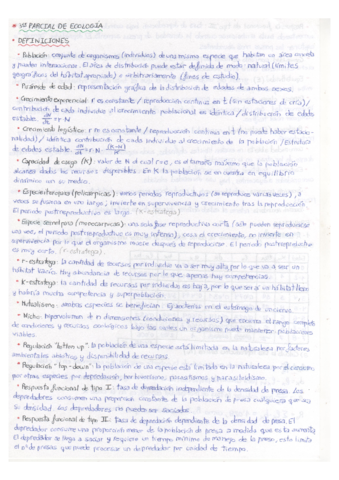 • VII PARCIAL DE ECOLOGÍA
• DEFINICIONES
• Población: conjunto de organismos (individuos) de una misma especie que habitan un área concreta
y pueden interaccionar. El área de distribución puede estar definida de modo natural (límites
geográficos del hábitat apropiado) o arbitrariamente (fines de estudio).
• Pirámide de edad: representación gráfica de la distribución de edades de ambos sexos.
• Crecimiento exponencial: r es constante / reproducción continua en t (sin estaciones de cría) /
contribución de cada individuo al crecimiento poblacional es idéntica / distribución de edades
estable.
• Crecimiento logístico: r es constante / reproducción continua en t (no puede haber estacio-
nalidad) / idéntica contribución de cada individuo al crecimiento de la población / Estructura
de edades estable.
• Capacidad de carga (K): valor de N al cual r=0, es el tamaño máximo que la población
alcanza dados los recursos disponibles. En K la población se encuentra en equilibrio
dinámico con su medio.
• Especie iteropara (policárpicas): varios periodos reproductivos (se reproduce varias veces), a
veces se pausa en uno largo, invierte en supervivencia y crecimiento tras la reproducción.
El periodo postreproductivo es largo (K-estratega)
• Especie semélpara (monocárpicas): una sola fase reproductiva corta (sólo pueden reproducirse
una vez, el periodo postreproductivo es muy intenso), cesa el crecimiento, no invierte en
supervivencia por lo que el organismo muere después de reproducirse. El periodo postreproductivo
es muy corto. (r-estratega).
• r-estratega: la cantidad de recursos por individuo va a ser muy alta por lo que va a ser un
hábitat . Hay abundancia de recursos por lo que apenas hay competencias.
• K-estratega: la cantidad de recursos por individuo es baja, por lo que va a ser un hábitat
y habrá mucha competencia y superpoblación.
• Mutualismo: ambas especies se benefician. Ej: bacterias en el estómago de vacunos.
• Nicho: hipervolumen de n dimensiones (condiciones y recursos) que contiene el rango completo
de condiciones y recursos bajo las cuales un organismo puede mantener poblaciones
viables.
• Regulación "bottom up": la población de una especie está limitada en la naturaleza por factores
ambientales abióticos y disponibilidad de recursos.
• Regulación "top-down": la población de una especie está limitada en la naturaleza por el crecimiento
por otras especies por depredación, herbivorismo, parasitismo y parasitoidismo.
• Respuesta funcional de tipo I: tasa de depredación independiente de la densidad de presa. Los
depredadores consumen una proporción constante de la población de presas cualquiera que sea
su densidad. Los depredadores no pueden ser saciados.
• Respuesta funcional de tipo II: tasa de depredación dependiente de la densidad de presa. El
depredador consume una proporción menor de la población de presa a medida que es ta aumenta.
El depredador se llega a saciar y requiere un tiempo mínimo de manejo de la presa, esto limita
el nº de presas que puede procesar un depredador por unidad de tiempo.